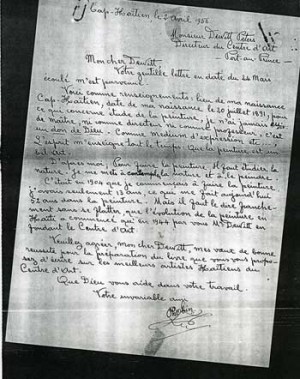 Cap-Haïtien le 2 Avril 1956
Monsieur Dewitt Peters
Directeur du Centre d'Art
Port-au-Prince
Mon cher Dewitt,
Votre gentille lettre en date du 24 Mars
écoulé m'est parvenue.
Voici comme renseignements: lieu de ma naissance
Cap-Haïtien, date de ma naissance le 20 juillet 1891, pour
ce qui concerne étude de la peinture, je n'ai jamais
de maître, ni comme directeur, ni comme professeur, c'est
un don de Dieu. Comme medium d'expression etc
L'esprit m'enseigne tout le temps. Que la peinture est
D'après moi, Pour faire la peinture, il faut étudier la
nature. Je me mets à contempler la nature et à le peindre.
C'était en 1904 que je commençais à faire la peinture
j'avais seulement 13 ans, ce qui donne aujourd'hui
52 ans dans la peinture. Mais il faut le dire franche-
ment sans flatter, que l'évolution de la peinture en
Haïti a commencé qu'en 1944 par vous Mr Dewitt en
fondant le Centre d'Art.
Veuillez agréer, mon cher Dewitt, mes vœux de bonne
réussite pour la préparation du livre que vous vous propo-
sez d'écrire sur les meilleurs artistes Haïtiens du
Centre d'Art.
Que Dieu vous aide dans votre travail.
Votre invariable ami